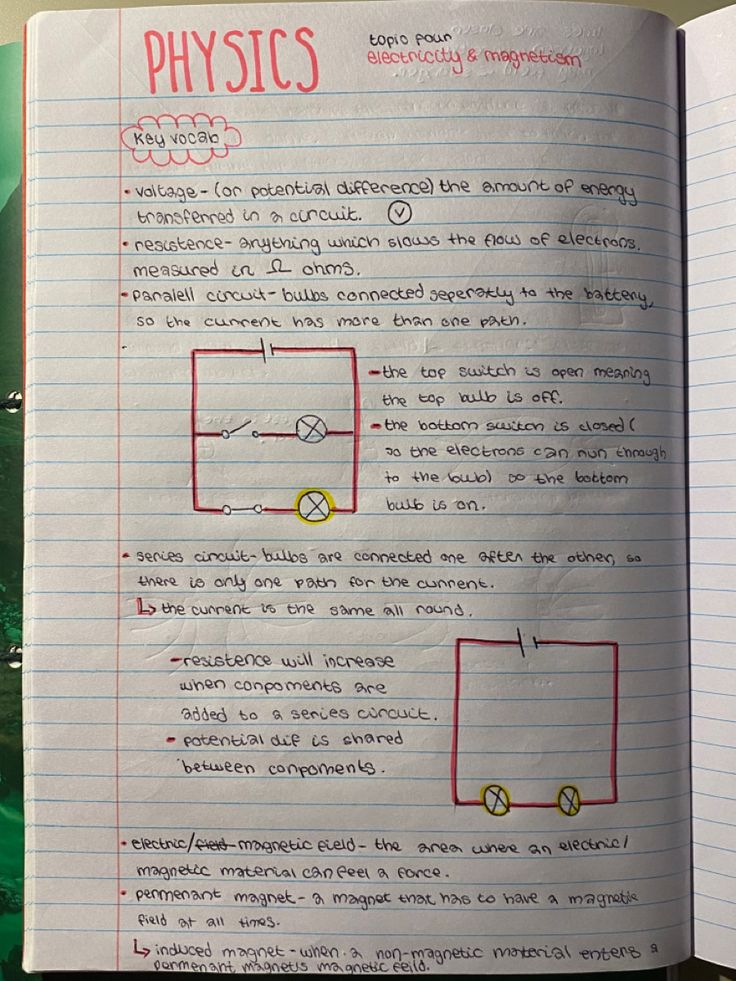 PHYSICS
topic four
electricity & magnetism
Key vocab
• voltage - (or potential difference) the amount of energy
transferred in a circuit. V
• resistence - anything which slows the flow of electrons.
measured in Ω ohms.
• paralell circuit - bulbs connected seperatly to the battery,
so the current has more than one path.
- the top switch is open meaning
the top bulb is off.
- the bottom switch is closed (
so the electrons can run through
to the bulb) so the bottom
bulb is on.
• series circuit - bulbs are connected one after the other, so
there is only one path for the current.
↳ the current is the same all round.
- resistence will increase
when conpoments are
added to a series circuit.
- potential dif is shared
between conpoments.
• electric/field magnetic field - the area where an electric/
magnetic material can feel a force.
• permenant magnet - a magnet that has to have a magnetic
field at all times.
↳ induced magnet - when a non-magnetic material enters a
permenant magnets magnetic feild.